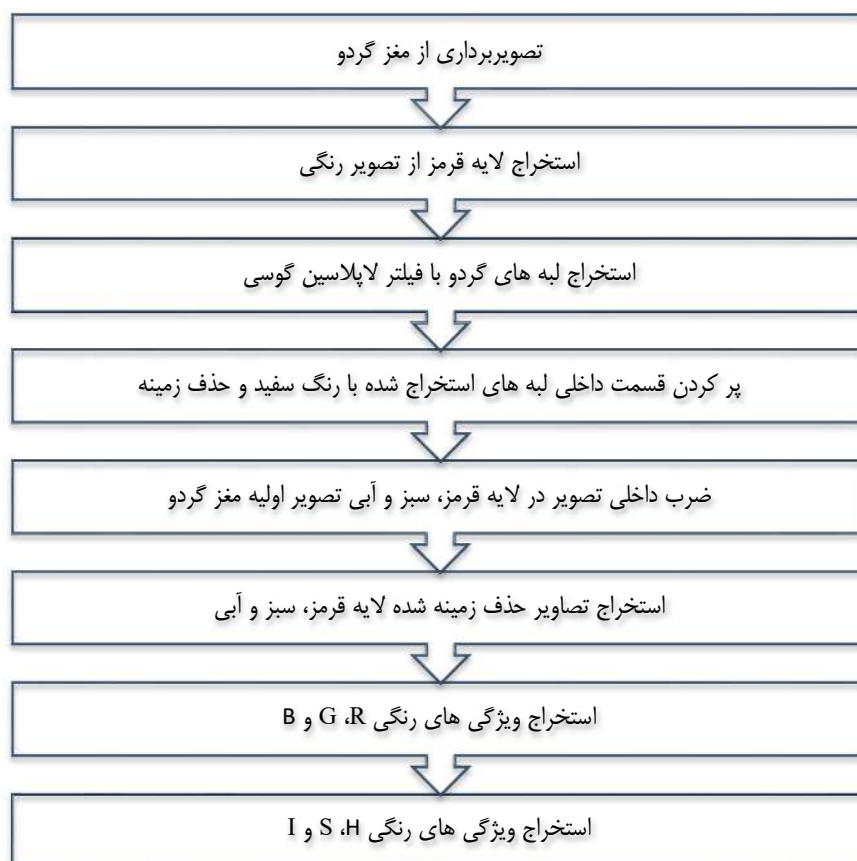 تصویربرداری از مغز گردو
استخراج لایه قرمز از تصویر رنگی
استخراج لبه های گردو با فیلتر لاپلاسین گوسی
پر کردن قسمت داخلی لبه های استخراج شده با رنگ سفید و حذف زمینه
ضرب داخلی تصویر در لایه قرمز، سبز و آبی تصویر اولیه مغز گردو
استخراج تصاویر حذف زمینه شده لایه قرمز، سبز و آبی
استخراج ویژگی های رنگی R، G و B
استخراج ویژگی های رنگی H، S و I